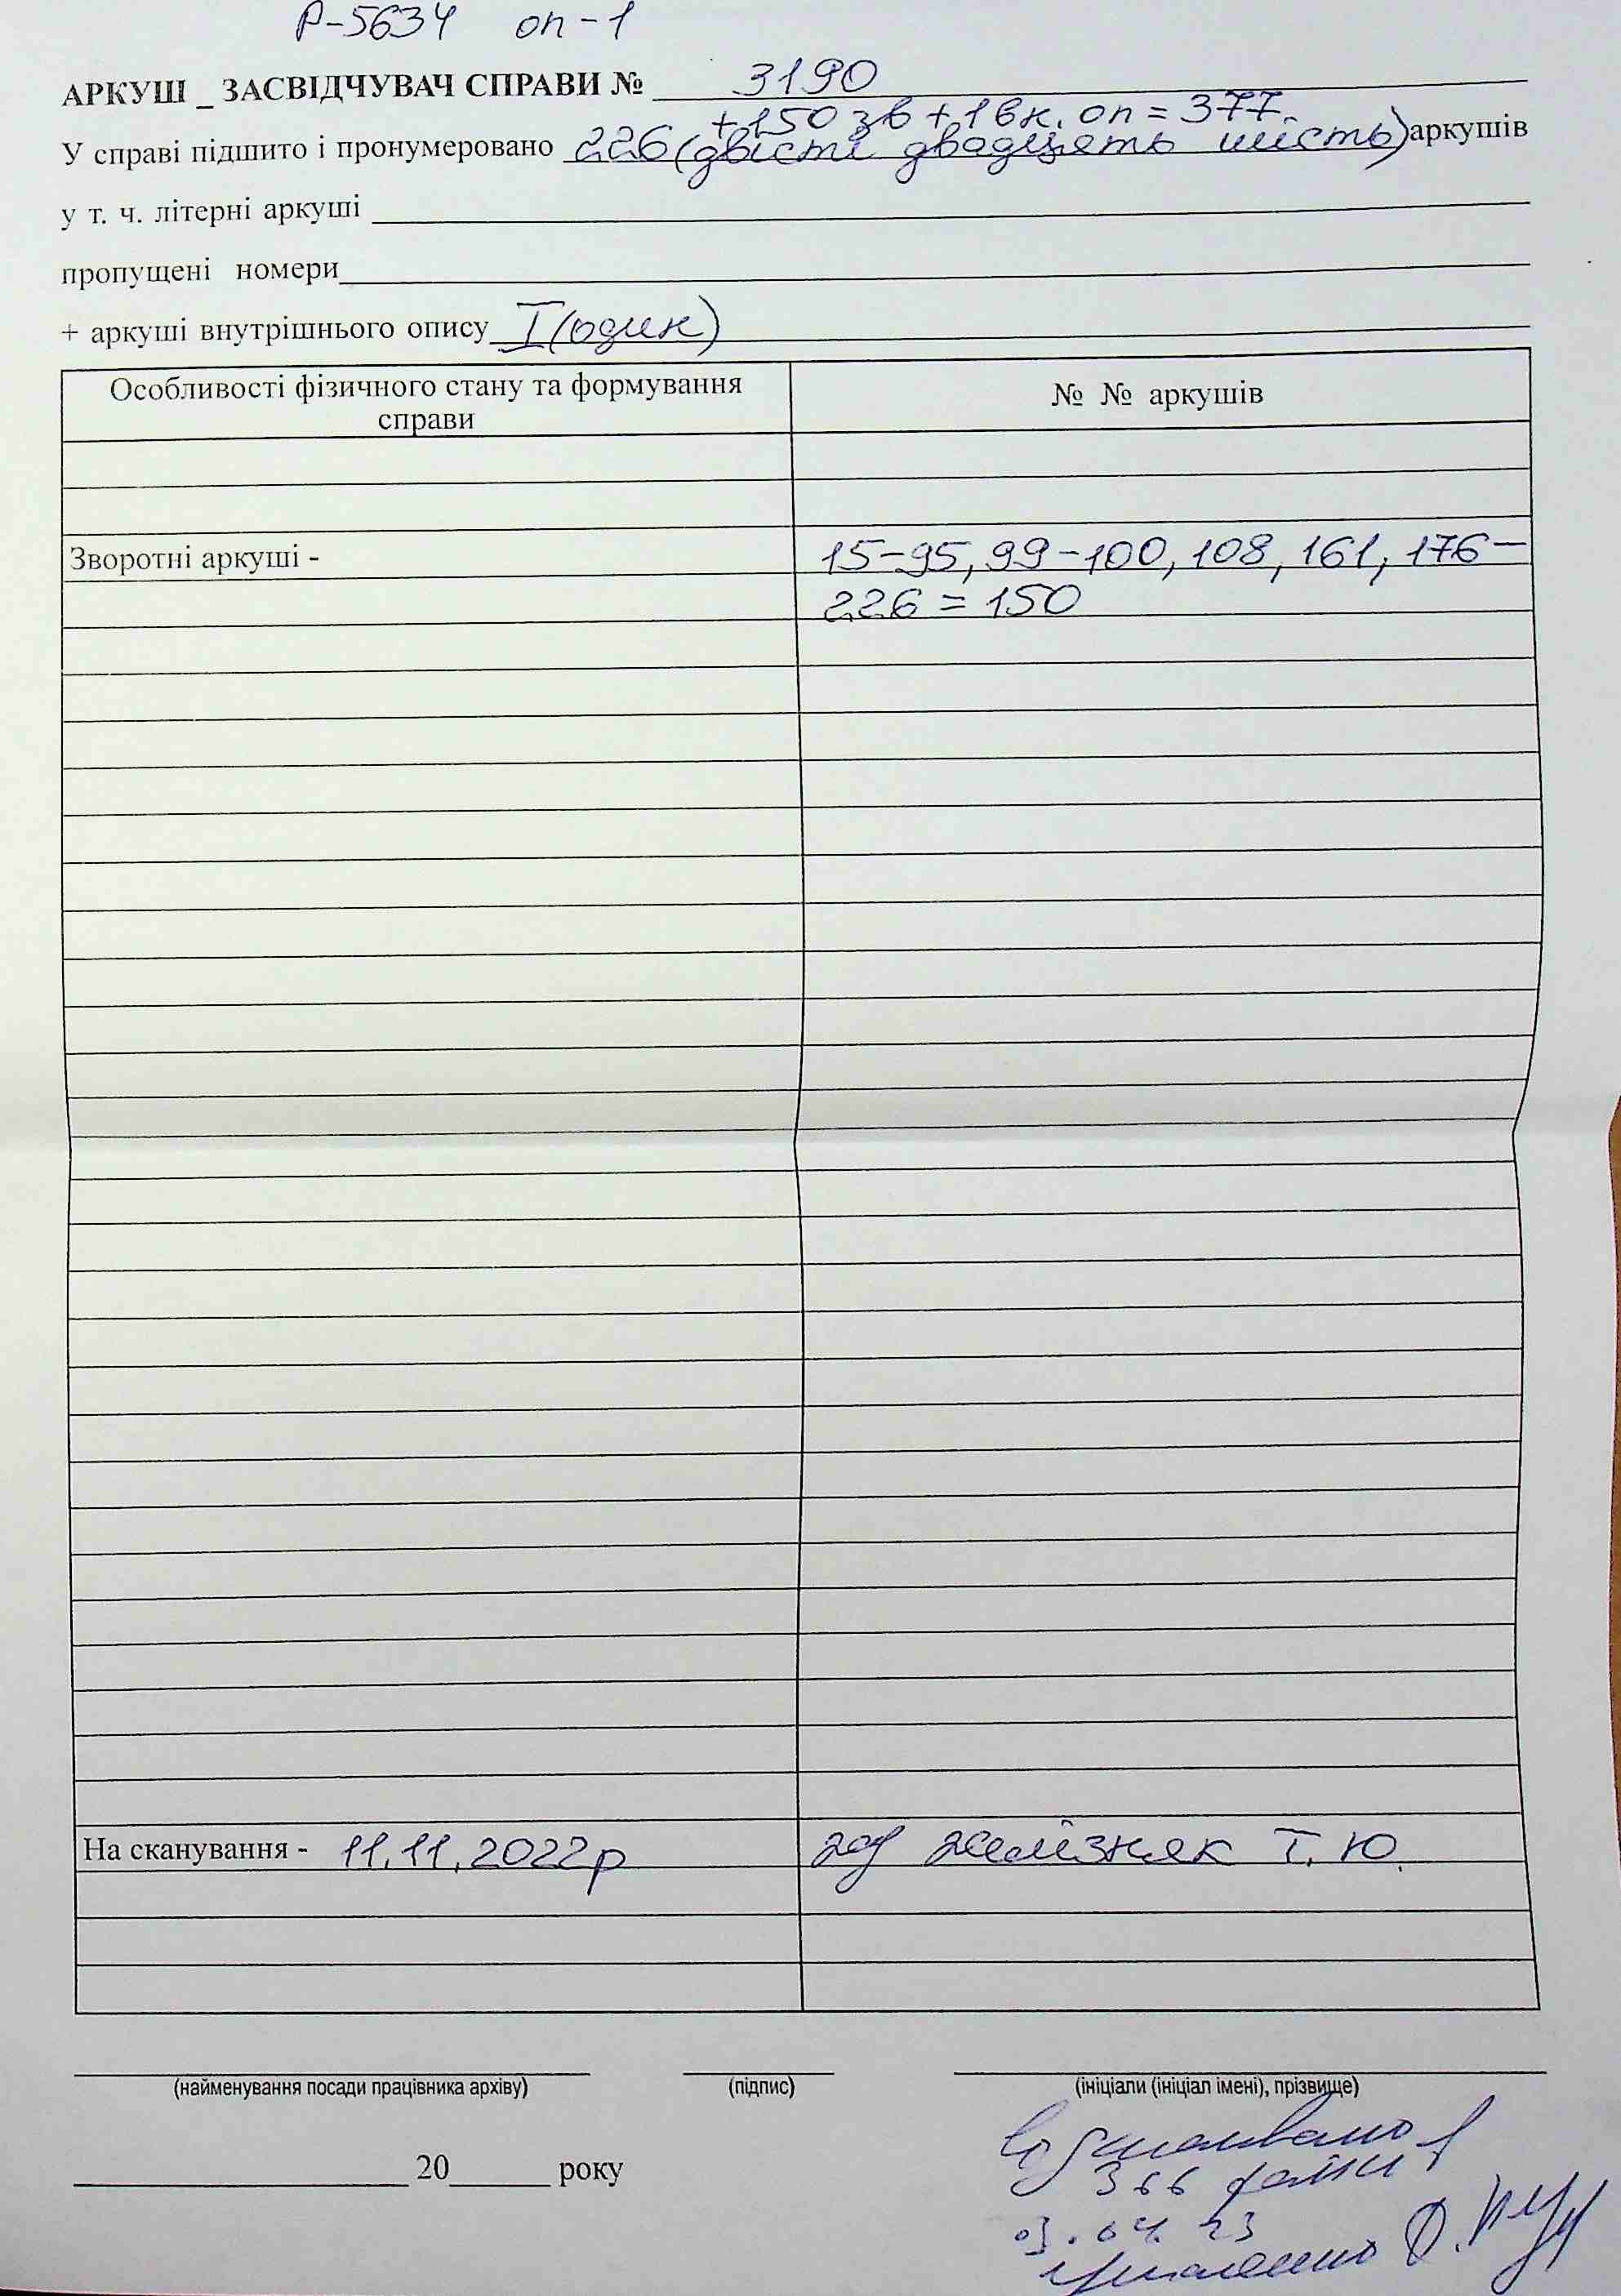 Р-5634 оп-1
АРКУШ _ ЗАСВІДЧУВАЧ СПРАВИ № 3190
+150 зв + 1 вн. оп = 377.
У справі підшито і пронумеровано 226 (двісті двадцять шість) аркушів
у т. ч. літерні аркуші
пропущені номери
+ аркуші внутрішнього опису I (один)
Особливості фізичного стану та формування № № аркушів
справи
Зворотні аркуші - 15-95, 99-100, 108, 161, 176-
226 = 150
На сканування - 11.11.2022р Железняк Т. Ю.
(найменування посади працівника архіву) (підпис) (ініціали (ініціал імені), прізвище)
20 року
366
03.04.23